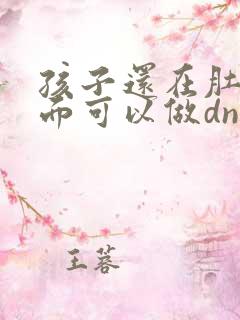 孩子還在肚
而可以做dn
王蓉